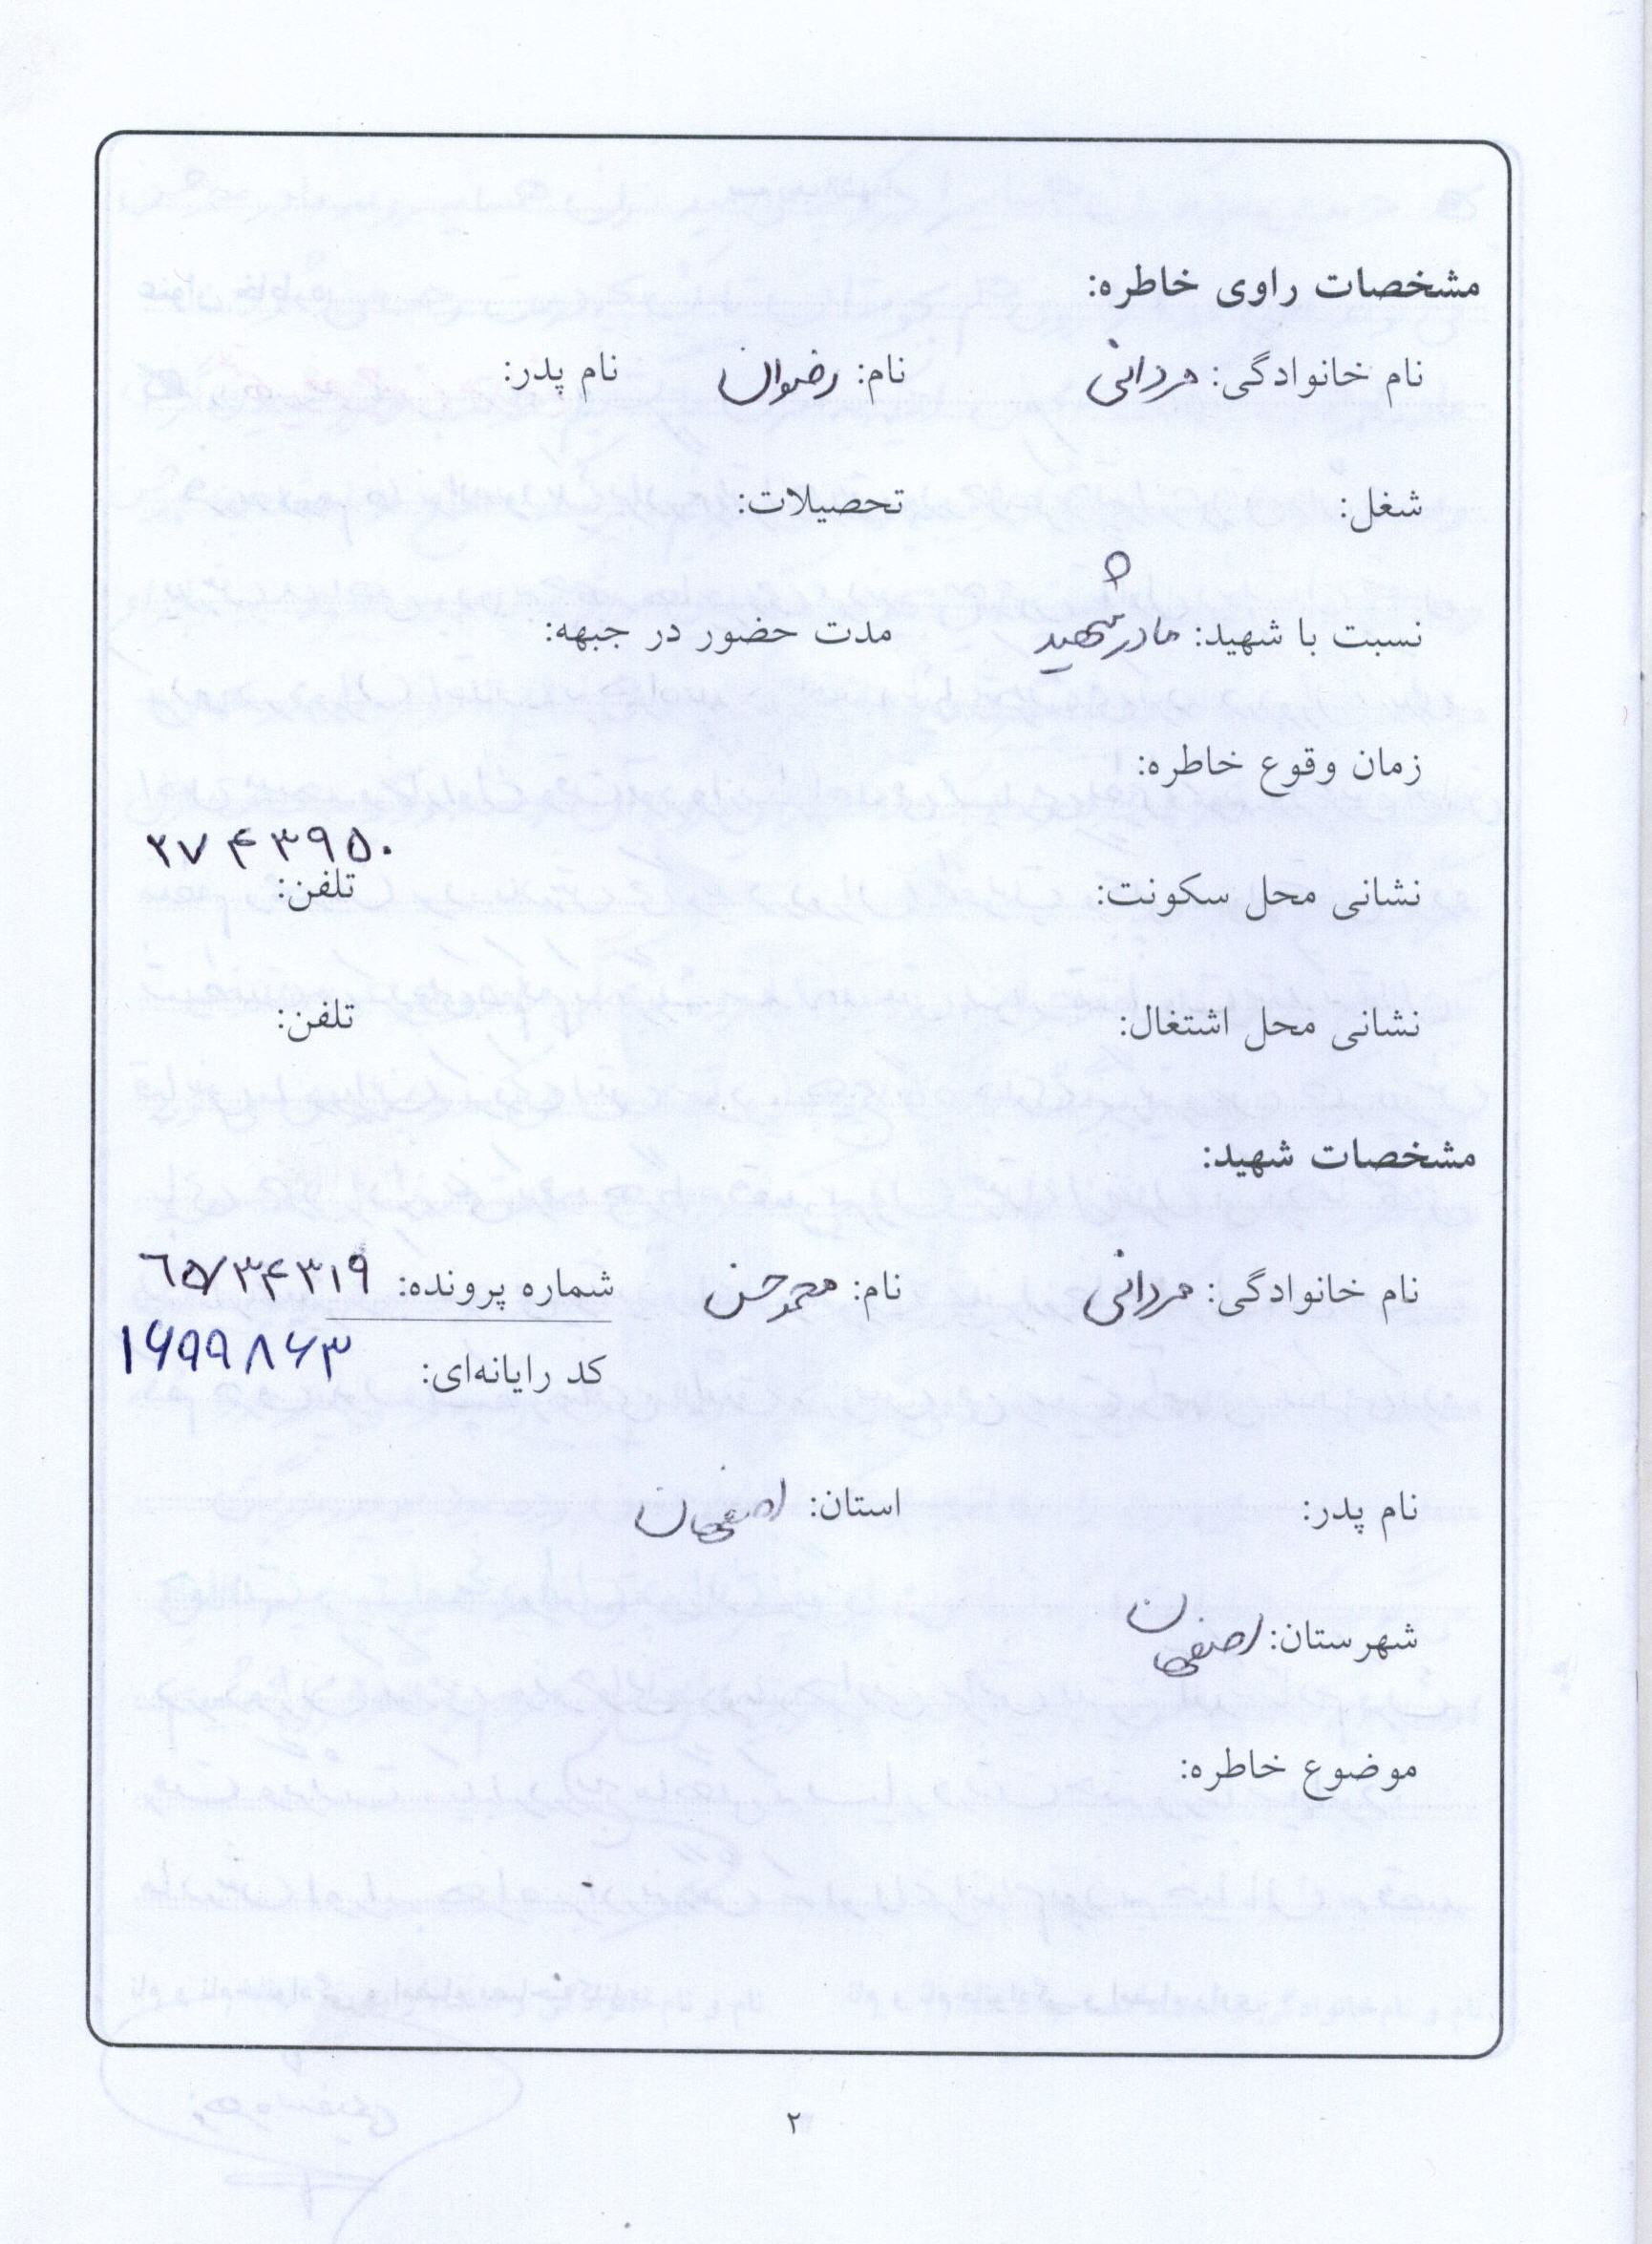 مشخصات راوی خاطره:
نام خانوادگی: مردانی نام: رضوان نام پدر:
شغل: تحصیلات:
نسبت با شهید: مادر شهید مدت حضور در جبهه:
زمان وقوع خاطره:
۲۷۴۳۹۵۰
نشانی محل سکونت: تلفن:
نشانی محل اشتغال: تلفن:
مشخصات شهید:
نام خانوادگی: مردانی نام: محمدحسن شماره پرونده: ۶۵۷۳۴۳۱۹
کد رایانه‌ای: ۱۶۹۹۸۶۳
نام پدر: استان: اصفهان
شهرستان: اصفهان
موضوع خاطره:
۲